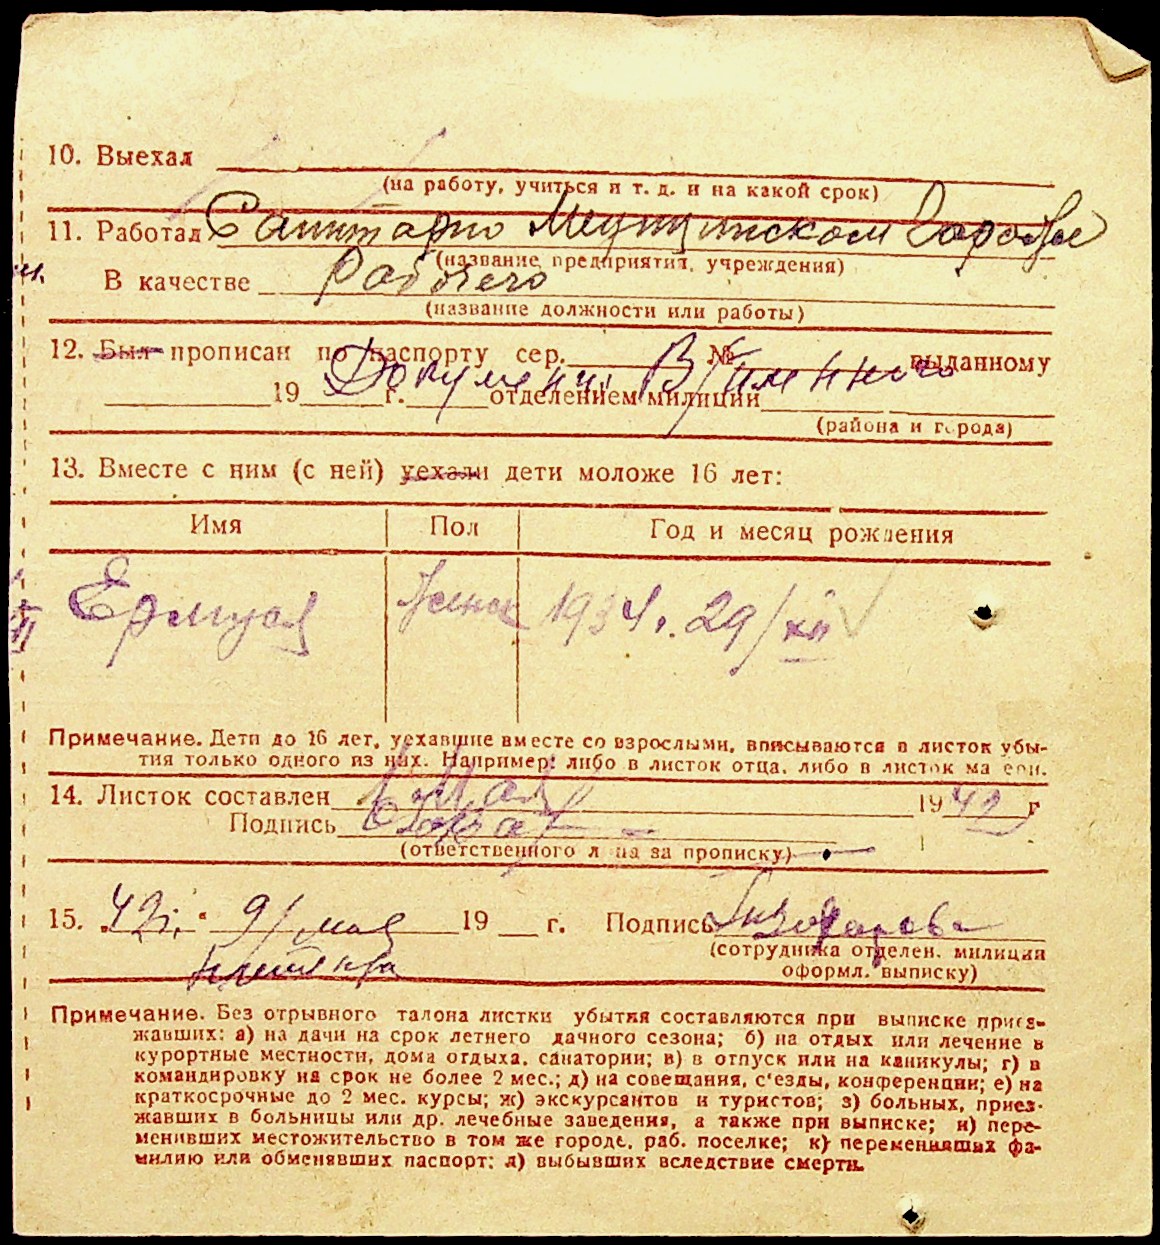 10. Выехал
(на работу, учиться и т. д. и на какой срок)
11. Работал Санитарно Медицинском
(название предприятия, учреждения)
В качестве Рабочего
(название должности или работы)
12. Был прописан по паспорту сер. № выданному
Документ Временного
19 г. отделением милиции
(района и города)
13. Вместе с ним (с ней) уехали дети моложе 16 лет:
Имя Пол Год и месяц рождения
женск 1934 г. 29/XII
Примечание. Дети до 16 лет, уехавшие вместе со взрослыми, вписываются в листок убы-
тия только одного из них. Например: либо в листок отца, либо в листок матери.
14. Листок составлен 1 Мая 1942 г
Подпись
(ответственного лица за прописку)
15. 42г. " 9/мая 19 г. Подпись
(сотрудника отделен. милиции
оформл. выписку)
Примечание. Без отрывного талона листки убытия составляются при выписке приез-
жавших: а) на дачи на срок летнего дачного сезона; б) на отдых или лечение в
курортные местности, дома отдыха, санатории; в) в отпуск или на каникулы; г) в
командировку на срок не более 2 мес.; д) на совещания, с'езды, конференции; е) на
краткосрочные до 2 мес. курсы; ж) экскурсантов и туристов; з) больных, приез-
жавших в больницы или др. лечебные заведения, а также при выписке; и) пере-
менивших местожительство в том же городе, раб. поселке; к) переменивших фа-
милию или обменявших паспорт; л) выбывших вследствие смерти.